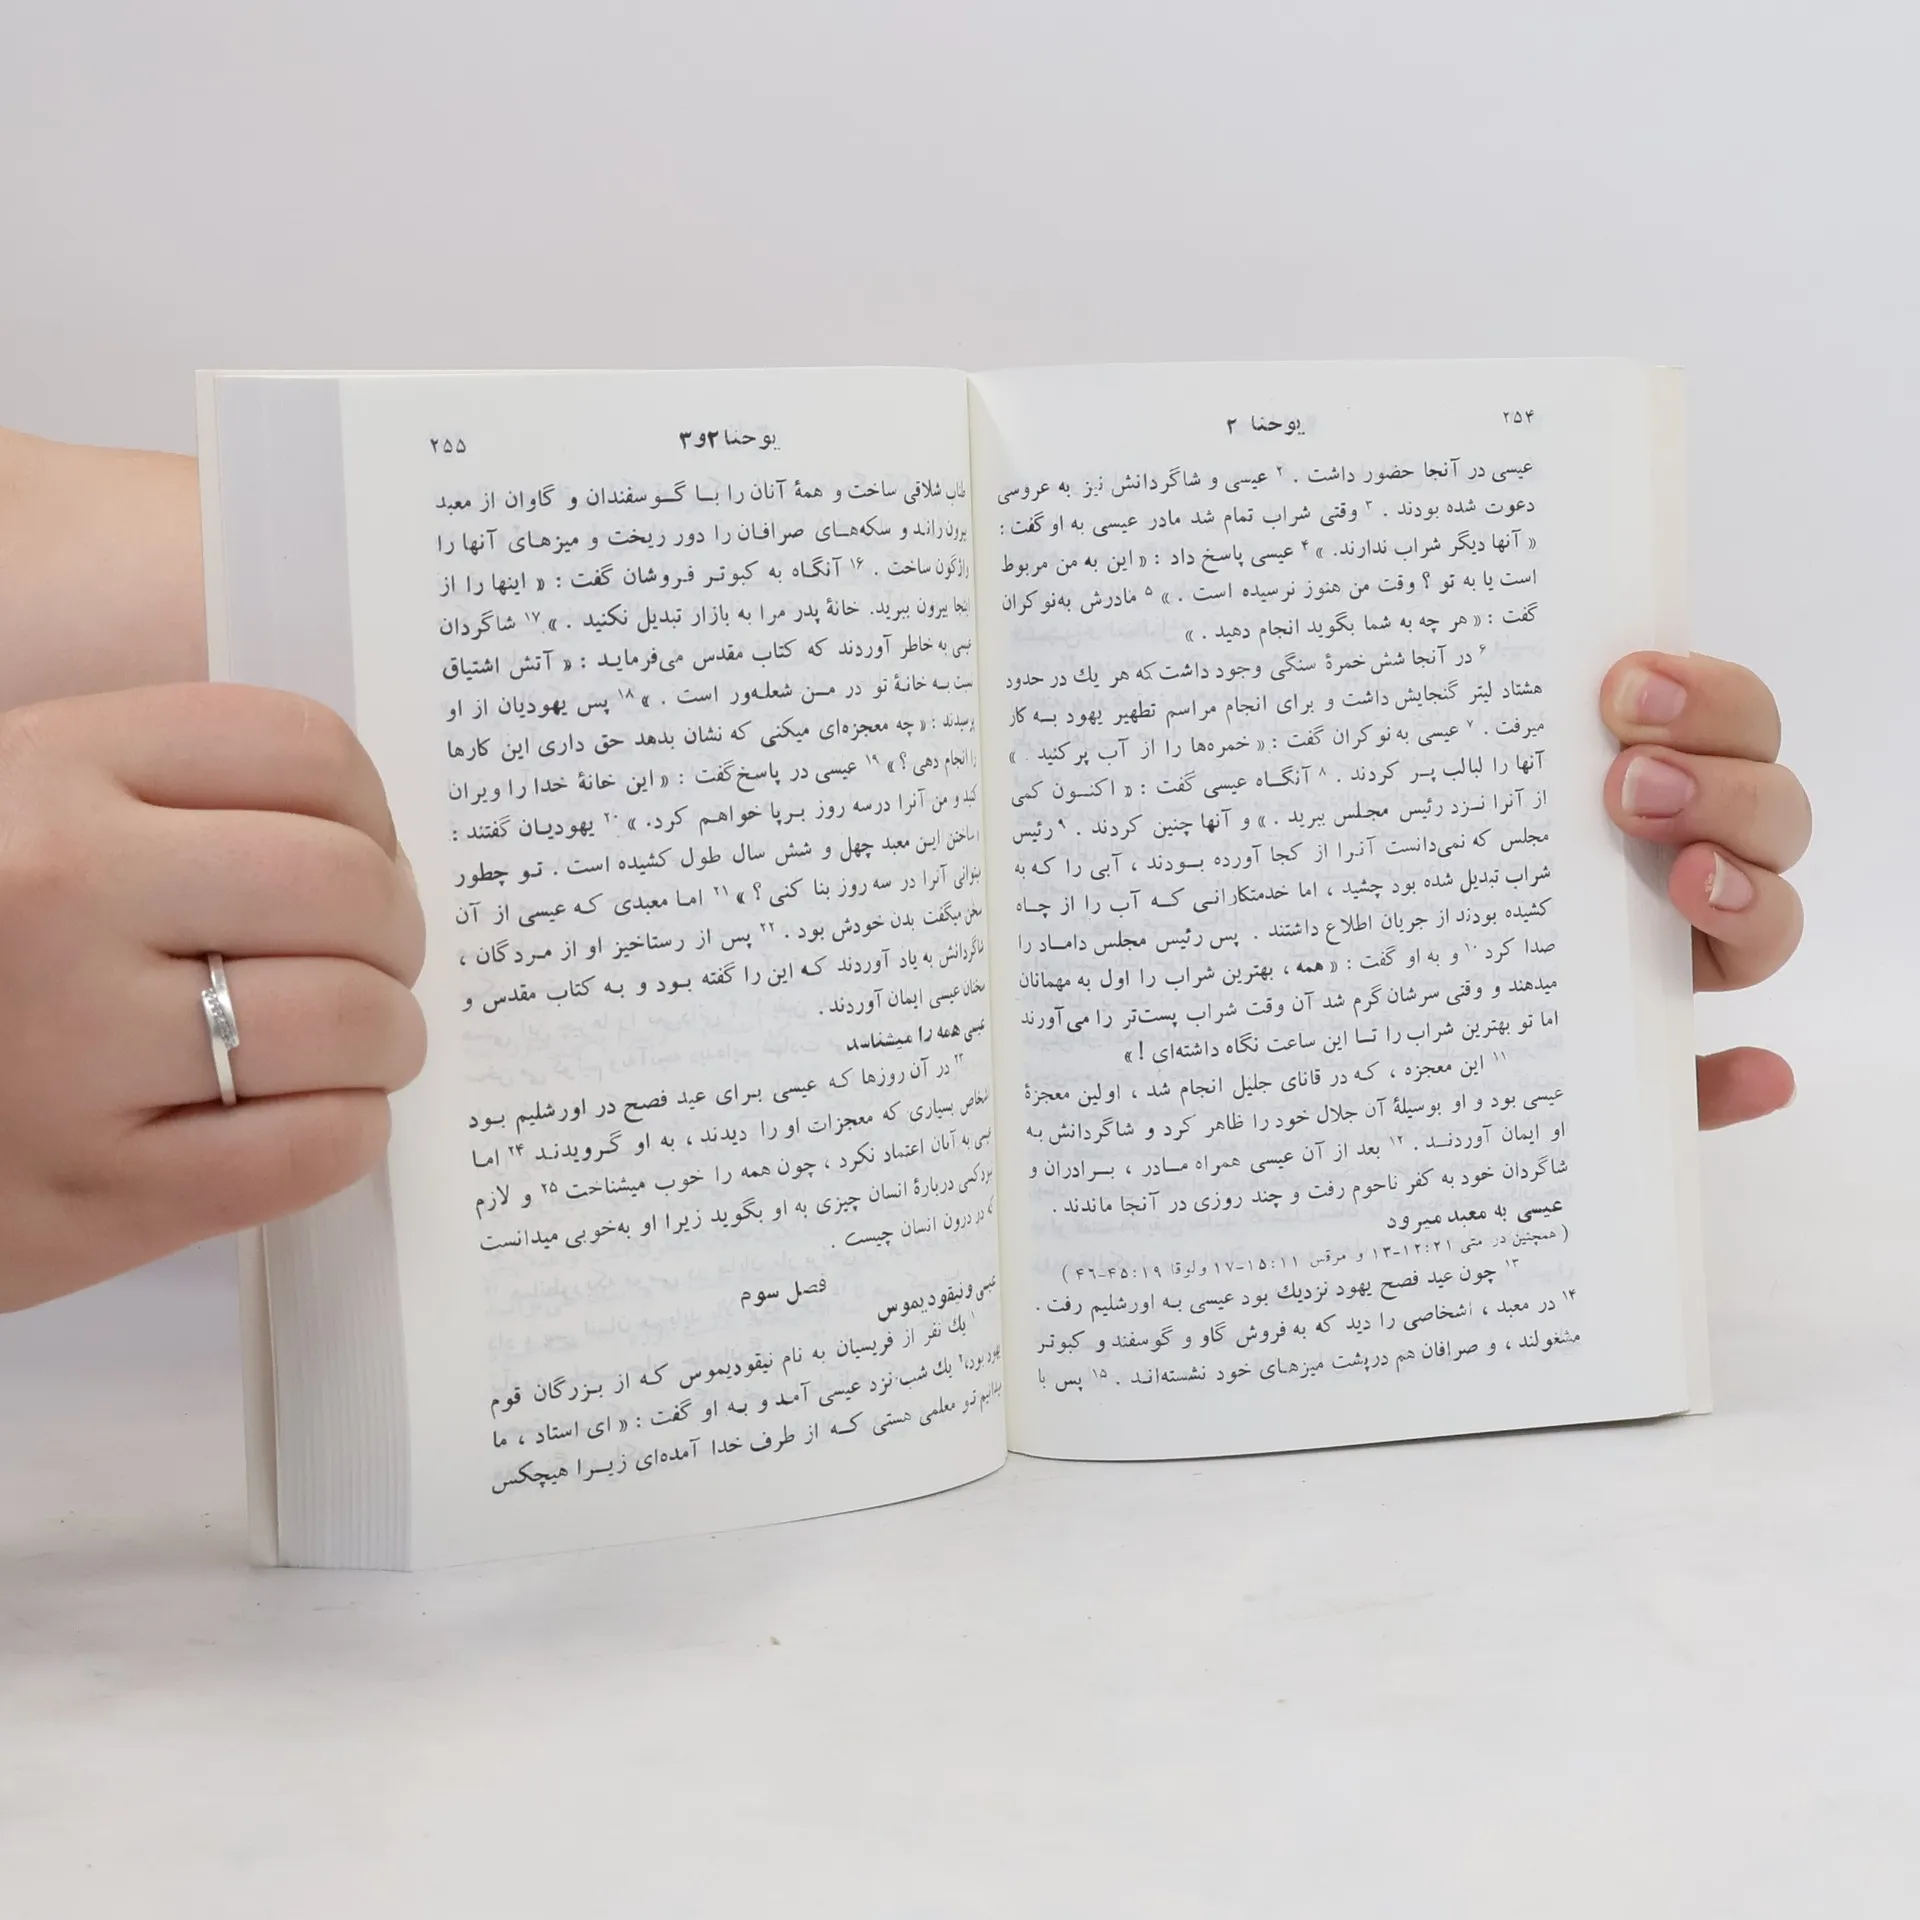 ۲۵۴
یوحنا ۲
عیسی در آنجا حضور داشت . ۲ عیسی و شاگردانش نیز به عروسی
دعوت شده بودند . ۳ وقتی شراب تمام شد مادر عیسی به او گفت :
« آنها دیگر شراب ندارند. » ۴ عیسی پاسخ داد : « این به من مربوط
است یا به تو ؟ وقت من هنوز نرسیده است . » ۵ مادرش به‌نوکران
گفت : « هر چه به شما بگوید انجام دهید . »
۶ در آنجا شش خمرهٔ سنگی وجود داشت که هر یك در حدود
هشتاد لیتر گنجایش داشت و برای انجام مراسم تطهیر یهود بـه کار
میرفت . ۷ عیسی به نوکران گفت : « خمره‌ها را از آب پرکنید . »
آنها را لبالب پـر کردند . ۸ آنگـاه عیسی گفت : « اکنـون کمی
از آنرا نـزد رئیس مجلس ببرید . » و آنها چنین کردند . ۹ رئیس
مجلس که نمی‌دانست آنرا از کجا آورده بـودند ، آبی را کـه به
شراب تبدیل شده بود چشید ، اما خدمتکارانی کـه آب را از چـاه
کشیده بودند از جریان اطلاع داشتند . پس رئیس مجلس دامـاد را
صدا کرد ۱۰ و به او گفت : « همه ، بهترین شراب را اول به مهمانان
میدهند و وقتی سرشان گرم شد آن وقت شراب پست‌تر را می‌آورند
اما تو بهترین شراب را تـا این ساعت نگاه داشته‌ای ! »
۱۱ این معجزه ، که در قانای جلیل انجام شد ، اولین معجزهٔ
عیسی بود و او بوسیلهٔ آن جلال خود را ظاهر کرد و شاگردانش به
او ایمان آوردنـد . ۱۲ بعد از آن عیسی همراه مـادر ، بـرادران و
شاگردان خود به کفر ناحوم رفت و چند روزی در آنجا ماندند .
عیسی به معبد میرود
( همچنین در متی ۱۲:۲۱-۱۳ و مرقس ۱۵:۱۱-۱۷ ولوقا ۴۵:۱۹-۴۶ )
۱۳ چون عید فصح یهود نزدیك بود عیسی بـه اورشلیم رفت .
۱۴ در معبد ، اشخاصی را دید که به فروش گاو و گوسفند و کبوتر
مشغولند ، و صرافان هم درپشت میزهـای خود نشسته‌انـد . ۱۵ پس با
یوحنا ۲و۳
۲۵۵
طناب شلاقی ساخت و همهٔ آنان را بـا گـوسفندان و گاوان از معبد
بیرون راند و سکه‌هـای صرافـان را دور ریخت و میزهـای آنها را
واژگون ساخت . ۱۶ آنگـاه به کبوتـر فـروشان گفت : « اینها را از
اینجا بیرون ببرید. خانهٔ پدر مرا به بازار تبدیل نکنید . » ۱۷ شاگردان
عیسی به خاطر آوردند که کتاب مقدس می‌فرمایـد : « آتش اشتیاق
بـه خانهٔ تو در مـن شعله‌ور است . » ۱۸ پس یهودیان از او
پرسیدند : « چه معجزه‌ای میکنی که نشان بدهد حق داری این کارها
را انجام دهی ؟ » ۱۹ عیسی در پاسخ گفت : « این خانهٔ خدا را ویران
کنید و من آنرا درسه روز بـرپا خواهـم کرد. » ۲۰ یهودیـان گفتند :
ساختن ایـن معبد چهل و شش سال طول کشیده است . تـو چطور
میتوانی آنرا در سه روز بنا کنی ؟ » ۲۱ امـا معبدی کـه عیسی از آن
سخن میگفت بدن خودش بود . ۲۲ پس از رستاخیز او از مـردگان ،
شاگردانش به یاد آوردند کـه این را گفته بـود و بـه کتاب مقدس و
سخنان عیسی ایمان آوردند .
عیسی همه را میشناسد
۲۳ در آن روزها کـه عیسی بـرای عید فصح در اورشلیم بـود
اشخاص بسیاری که معجزات او را دیدند ، به او گـرویدنـد ۲۴ امـا
عیسی به آنان اعتماد نکرد ، چون همه را خوب میشناخت ۲۵ و لازم
نبود کسی دربارهٔ انسان چیزی به او بگوید زیرا او به‌خوبی میدانست
که در درون انسان چیست .
فصل سوم
عیسی ونیقودیموس
۱ یك نفر از فریسیان به نام نیقودیموس کـه از بـزرگان قوم
یهود بود، ۲ یك شب نزد عیسی آمـد و بـه او گفت : « ای استاد ، ما
میدانیم تـو معلمی هستی کـه از طرف خدا آمده‌ای زیـرا هیچکس